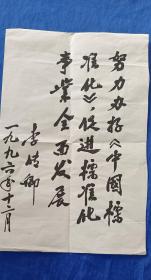 努力办好《中國標
准化》促進標准化
事業全面发展
李传卿
一九九六年十二月